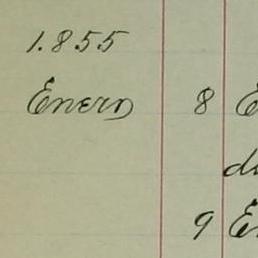 1.855
Enero 8 E
d
9 E